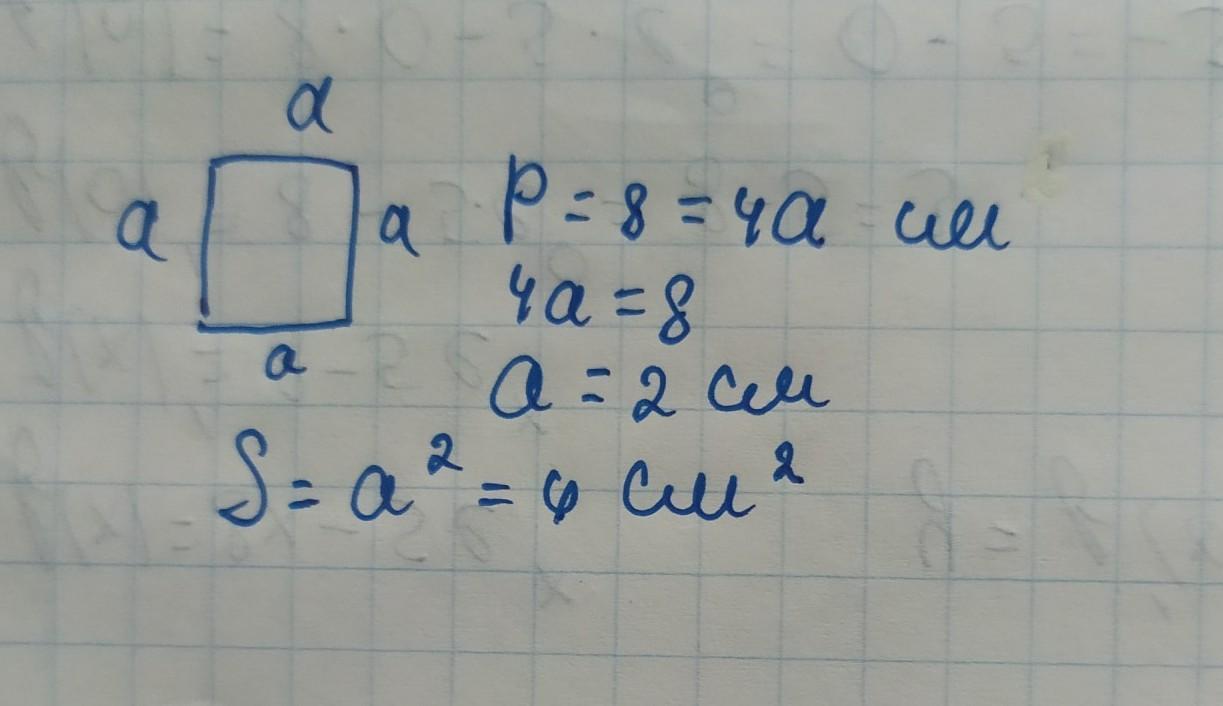 a
a a P = 8 = 4a см
4a = 8
a a = 2 см
S = a² = 4 см²